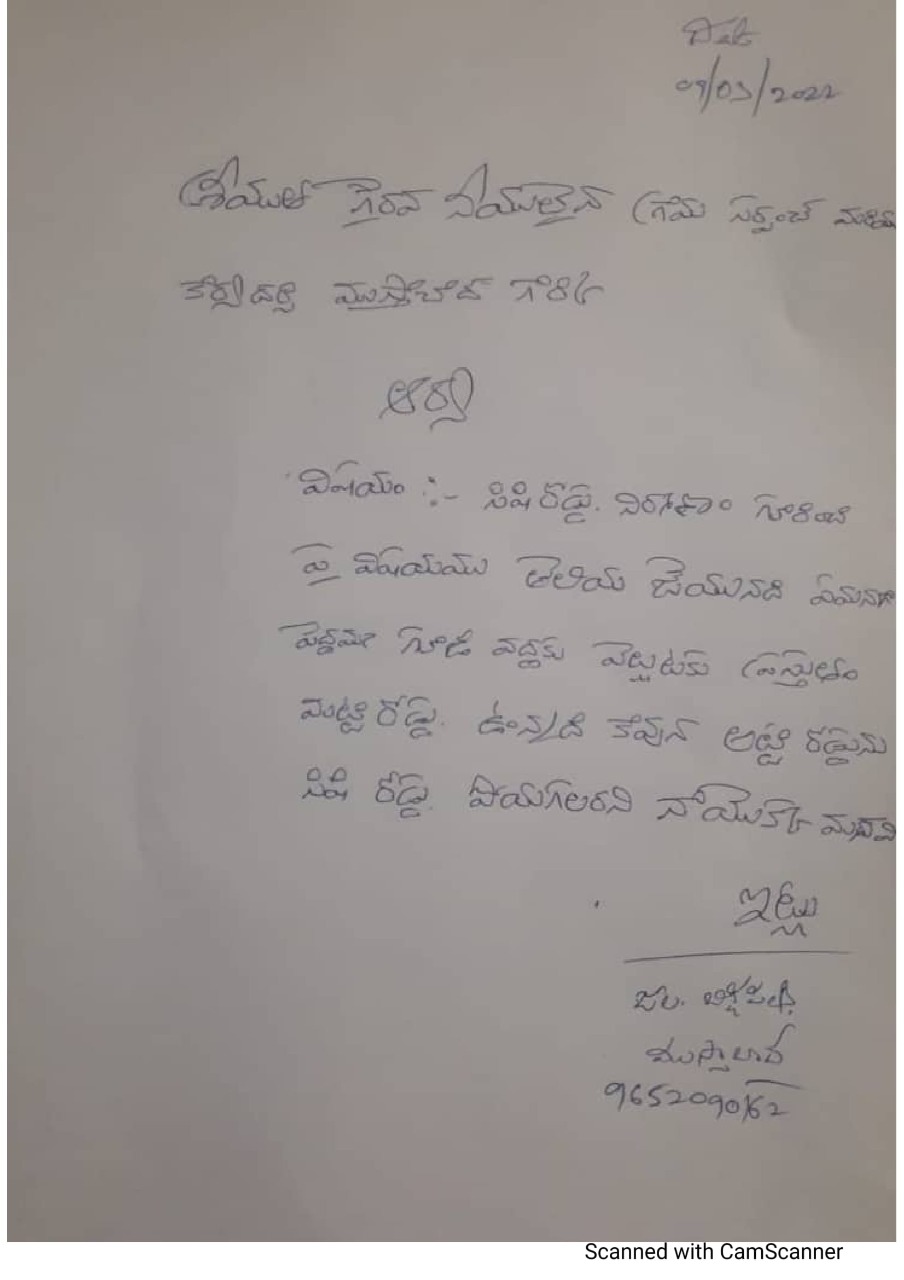 Date
09/03/2022
శ్రీయుత గౌరవ నీయులైన గ్రామ సర్పంచ్ మరియు
కార్యదర్శి ముస్తాబాద్ గారికి
ఆర్జి
విషయం :- సిసి రోడ్డు. నిర్మాణం గూరించి
పై విషయము తెలియ జేయునది ఏమనగా
పెద్దమ్మ గూడి వద్దకు వెల్లుటకు ప్రస్తుతం
మట్టి రోడ్డు. ఉన్నది కావున అట్టి రోడ్డును
సిసి రోడ్డు. పోయగలరని నాయొక్క మనవి
ఇట్లు
జల.
ముస్తాబాద
9652090162
Scanned with CamScanner